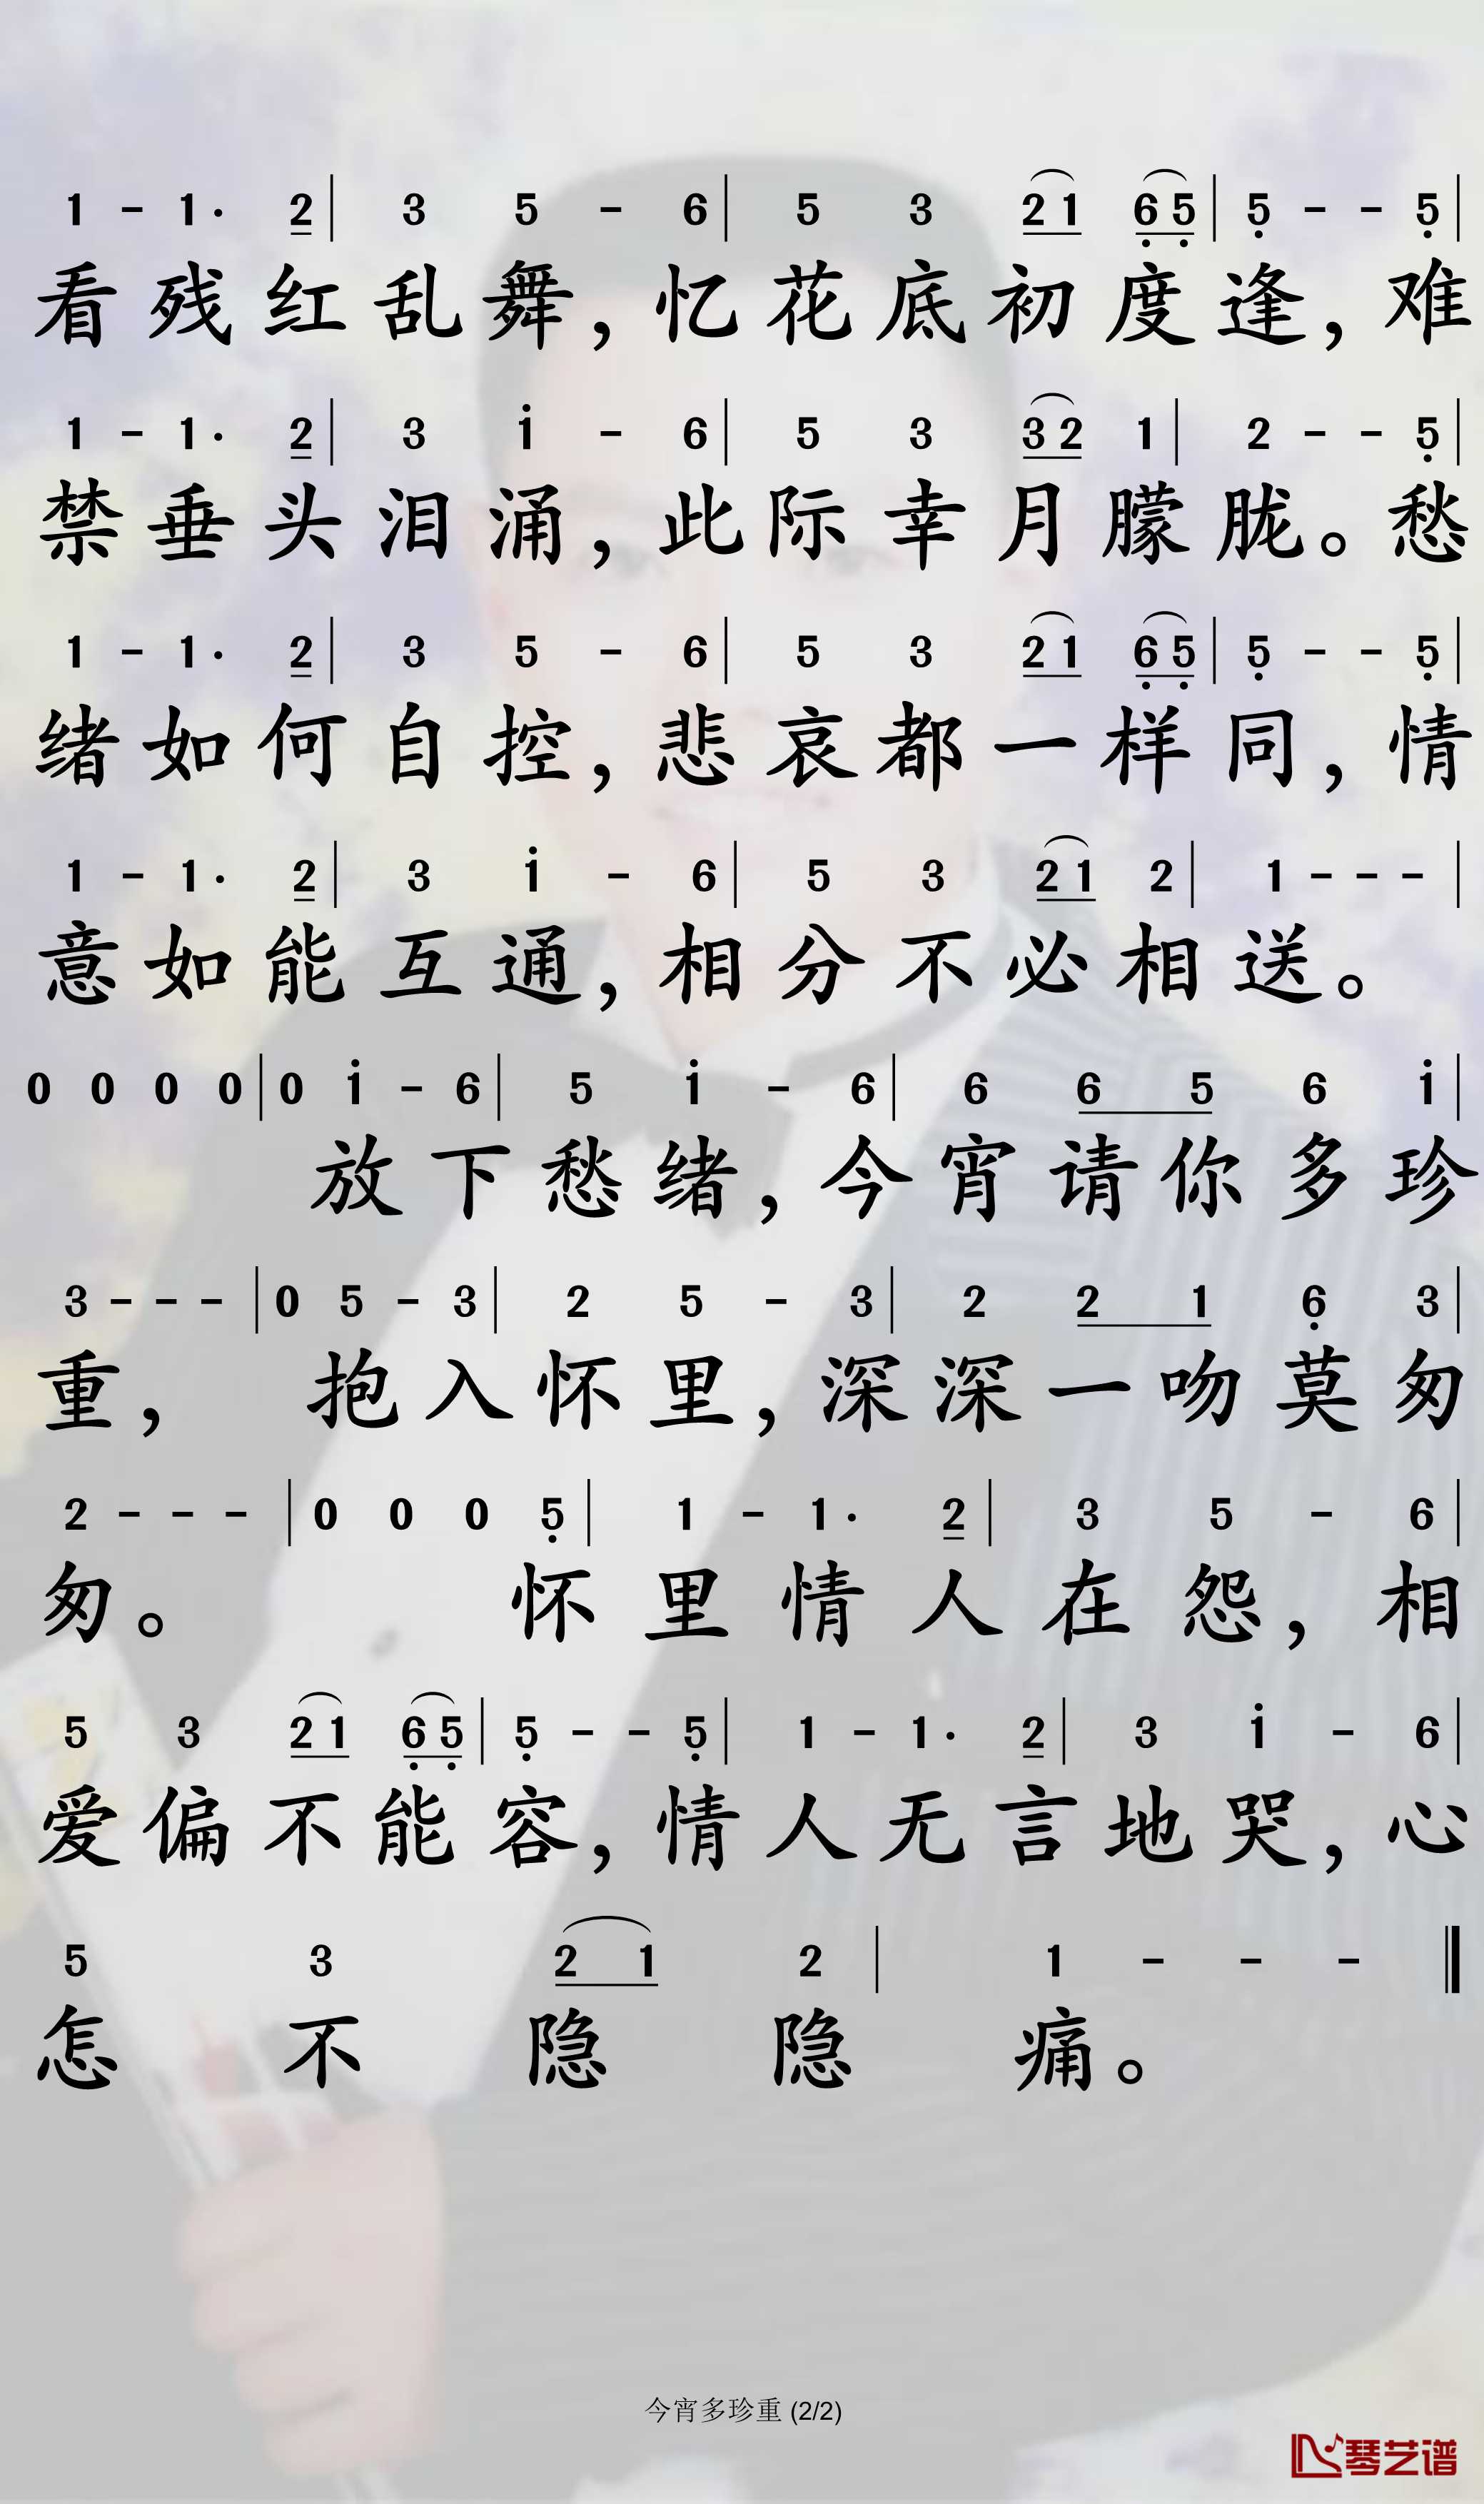 1 - 1· 2 | 3 5 - 6 | 5 3 2 1 6̣ 5̣ | 5̣ - - 5̣ |
看残红乱舞，忆花底初度逢，难
1 - 1· 2 | 3 i - 6 | 5 3 3 2 1 | 2 - - 5̣ |
禁垂头泪涌，此际幸月朦胧。愁
1 - 1· 2 | 3 5 - 6 | 5 3 2 1 6̣ 5̣ | 5̣ - - 5̣ |
绪如何自控，悲哀都一样同，情
1 - 1· 2 | 3 i - 6 | 5 3 2 1 2 | 1 - - - |
意如能互通，相分不必相送。
0 0 0 0 | 0 i - 6 | 5 i - 6 | 6 6 5 6 i |
放下愁绪，今宵请你多珍
3 - - - | 0 5 - 3 | 2 5 - 3 | 2 2 1 6̣ 3 |
重，抱入怀里，深深一吻莫匆
2 - - - | 0 0 0 5̣ | 1 - 1· 2 | 3 5 - 6 |
匆。怀里情人在怨，相
5 3 2 1 6̣ 5̣ | 5̣ - - 5̣ | 1 - 1· 2 | 3 i - 6 |
爱偏不能容，情人无言地哭，心
5 3 2 1 2 | 1 - - - ‖
怎不隐隐痛。
今宵多珍重 (2/2)
琴艺谱